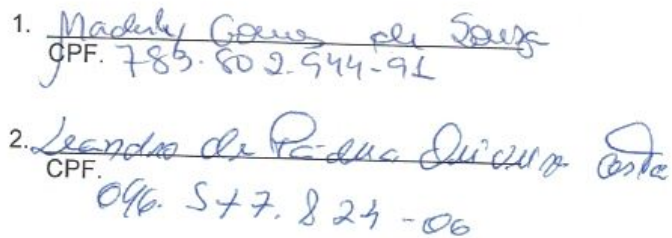 1. Gomes de Souza
CPF. 783.802.944-91
2. Leandro de Pádua Costa
CPF.
046.577.824-06